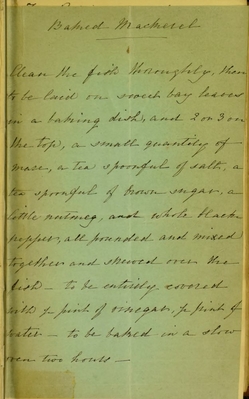 Baked Mackerel
Clean the fish thoroughly, then
to be laid on sweet bay leaves
in a baking dish, and 2 or 3 on
the top, a small quantity of
mace, a tea spoonful of salt, a
tea spoonful of brown sugar, a
little nutmeg, and whole black
pepper, all pounded and mixed
together and strewed over the
fish — to be entirely covered
with ½ pint of vinegar, ½ pint of
water — to be baked in a slow
oven two hours —